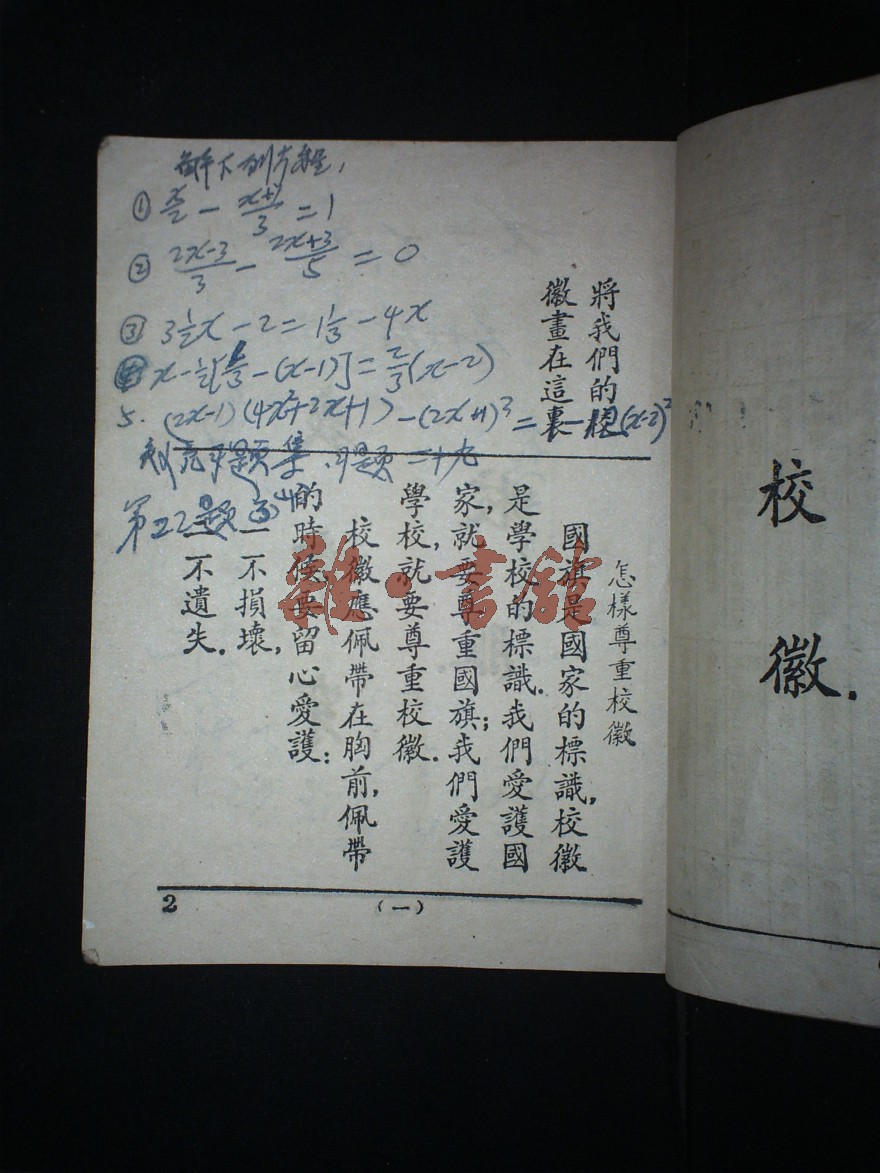 校徽.
將我們的校
徽畫在這裏
怎樣尊重校徽
國旗是國家的標識,校徽
是學校的標識.我們愛護國
家,就要尊重國旗;我們愛護
學校,就要尊重校徽.
校徽應佩帶在胸前,佩帶
的時候要留心愛護:
一不損壞,
二不遺失.
2
(一)
解下列方程,
① x/2 - (x+1)/3 = 1
② (2x-3)/3 - (2x+3)/5 = 0
③ 3½x - 2 = 1⅓ - 4x
(x-1)] = ⅔(x-2)
5. (2x-1)(4x²+2x+1) - (2x+1)³ =
題集 習題二十九
第22題
雜·書館